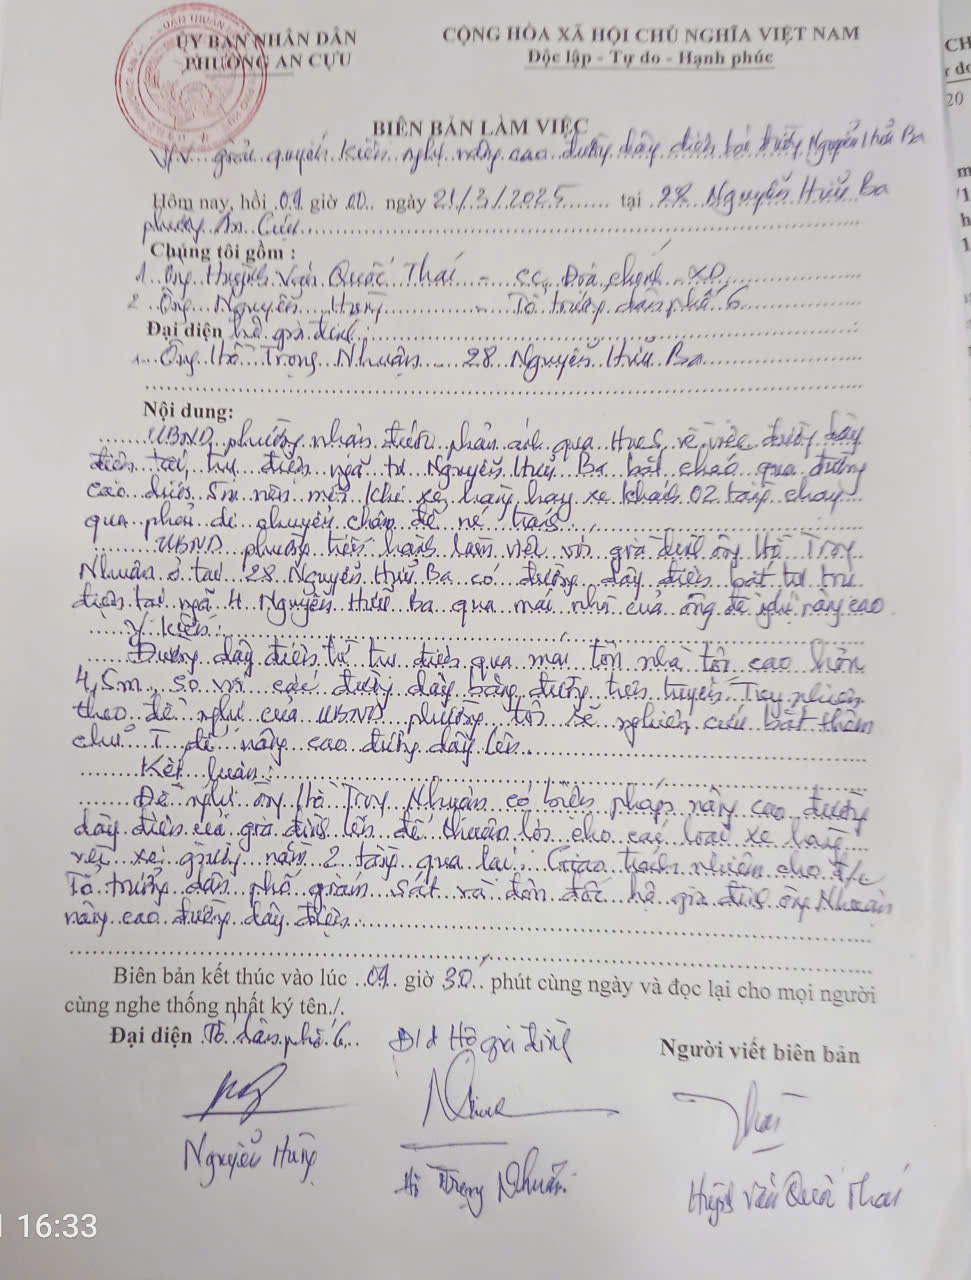 ỦY BAN NHÂN DÂN
PHƯỜNG AN CỰU
CỘNG HÒA XÃ HỘI CHỦ NGHĨA VIỆT NAM
Độc lập - Tự do - Hạnh phúc
BIÊN BẢN LÀM VIỆC
V/v giải quyết kiến nghị nâng cao đường dây điện tại đường Nguyễn Hữu Ba
Hôm nay, hồi 09 giờ 00 ngày 21/3/2025 tại 28 Nguyễn Hữu Ba
phường An Cựu
Chúng tôi gồm :
1. Ông Huỳnh Văn Quốc Thái - CC Địa chính - XD
2. Ông Nguyễn Hưng - Tổ trưởng dân phố 6
Đại diện hộ gia đình :
1. Ông Hồ Trọng Nhuận - 28 Nguyễn Hữu Ba
Nội dung:
UBND phường nhận được phản ánh qua HueS về việc đường dây
điện tại trụ điện ngã tư Nguyễn Hữu Ba bắt chéo qua đường
cao dưới 5m nên mỗi khi xe hàng hay xe khách 02 tầng chạy
qua phải di chuyển chậm để né tránh
UBND phường tiến hành làm việc với gia đình ông Hồ Trọng
Nhuận ở tại 28 Nguyễn Hữu Ba có đường dây điện bắt từ trụ
điện tại ngã 4 Nguyễn Hữu Ba qua mái nhà của ông đề nghị nâng cao
Ý kiến :
Đường dây điện từ trụ điện qua mái tôn nhà tôi cao hơn
4,5m so với các đường dây băng đường trên tuyến. Tuy nhiên
theo đề nghị của UBND phường tôi sẽ nghiên cứu bắt thêm
chữ T để nâng cao đường dây lên
Kết luận :
Đề nghị ông Hồ Trọng Nhuận có biện pháp nâng cao đường
dây điện của gia đình lên để thuận lợi cho các loại xe hàng
với xe giường nằm 2 tầng qua lại. Giao trách nhiệm cho đ/c
Tổ trưởng dân phố giám sát và đôn đốc hộ gia đình ông Nhuận
nâng cao đường dây điện
Biên bản kết thúc vào lúc 09 giờ 30 phút cùng ngày và đọc lại cho mọi người
cùng nghe thống nhất ký tên./.
Đại diện Tổ dân phố 6
Đ/d Hộ gia đình
Người viết biên bản
Nguyễn Hưng
Hồ Trọng Nhuận
Huỳnh Văn Quốc Thái
16:33